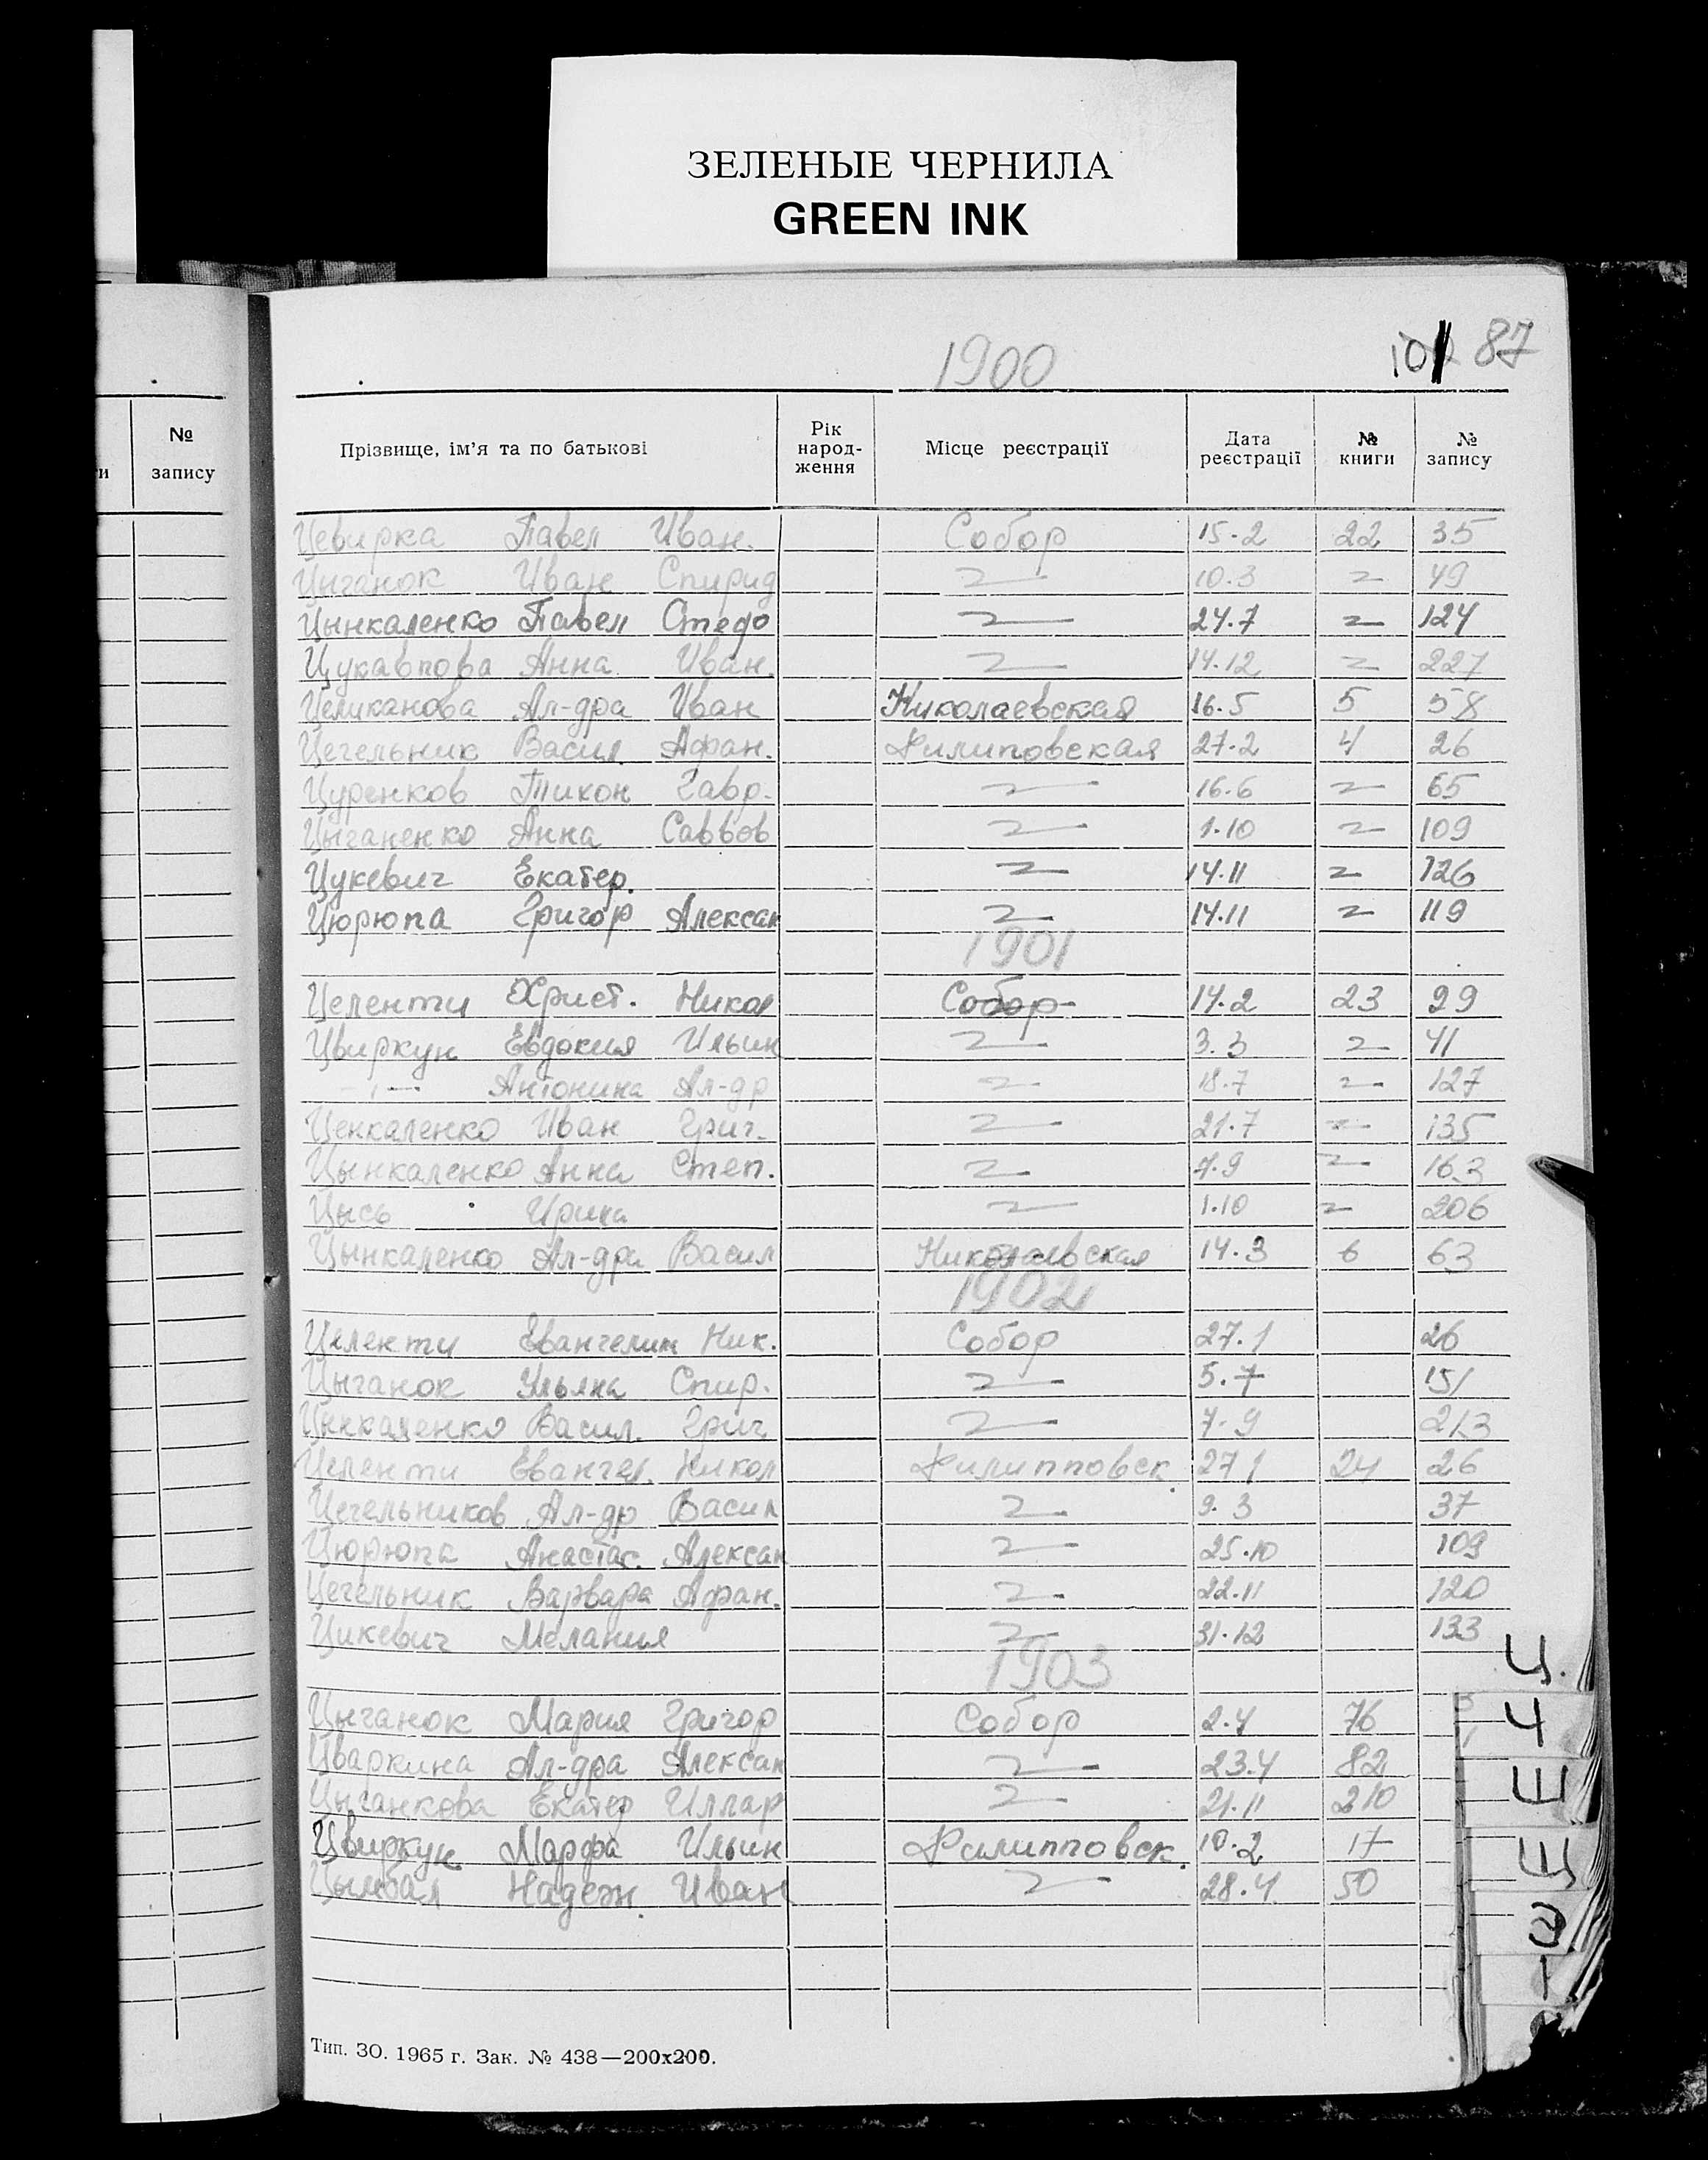 ЗЕЛЕНЫЕ ЧЕРНИЛА
GREEN INK
1900
101 87
№ запису
Прізвище, ім'я та по батькові Рік народ-ження Місце реєстрації Дата реєстрації № книги № запису
Цевирка Павел Иван. Собор 15.2 22 35
Цыганок Иван Спирид 〃 10.3 〃 49
Цынкаленко Павел Стефо 〃 24.7 〃 124
Анна Иван. 〃 14.12 〃 227
Целиканова Ал-дра Иван Николаевская 16.5 5 58
Цегельник Васил. Афан. Филиповская 27.2 4 26
Цуренков Тихон Гавр. 〃 16.6 〃 65
Цыганенко Анна Саввов 〃 1.10 〃 109
Цукевич Екатер. 〃 14.11 〃 126
Цюрюпа Григор Алексан 〃 14.11 〃 119
1901
Целенти Христ. Никол Собор 14.2 23 29
Цвиркун Евдокия Ильин 〃 3.3 〃 41
—〃— Антонина Ал-др 〃 18.7 〃 127
Ценкаленко Иван Григ. 〃 21.7 〃 135
Цынкаленко Анна Степ. 〃 7.9 〃 163
Цысь Ирина 〃 1.10 〃 206
Цынкаленко Ал-дра Васил Николаевская 14.3 6 63
1902
Целенти Евангелин Ник. Собор 27.1 26
Цыганок Ульяна Спир. 〃 5.7 151
Цынкаленко Васил. Григ 〃 7.9 213
Целенти Евангел. Никол Филипповск. 27 1 24 26
Цегельников Ал-др Васил 〃 9.3 37
Цюрюпа Анастас. Алексан 〃 25.10 109
Цегельник Варвара Афан. 〃 22.11 120
Цикевич Мелания 〃 31.12 133
1903
Цыганок Мария Григор Собор 2.4 76
Цваркина Ал-дра Алексан 〃 23.4 82
Цыганкова Екатер Иллар 〃 21.11 210
Цвиркун Марфа Ильин Филипповск. 10.2 17
Цымбал Надеж. Иван 〃 28.4 50
Ц
Ч
Ш
Щ
Э
Тип. ЗО. 1965 г. Зак. № 438—200х200.